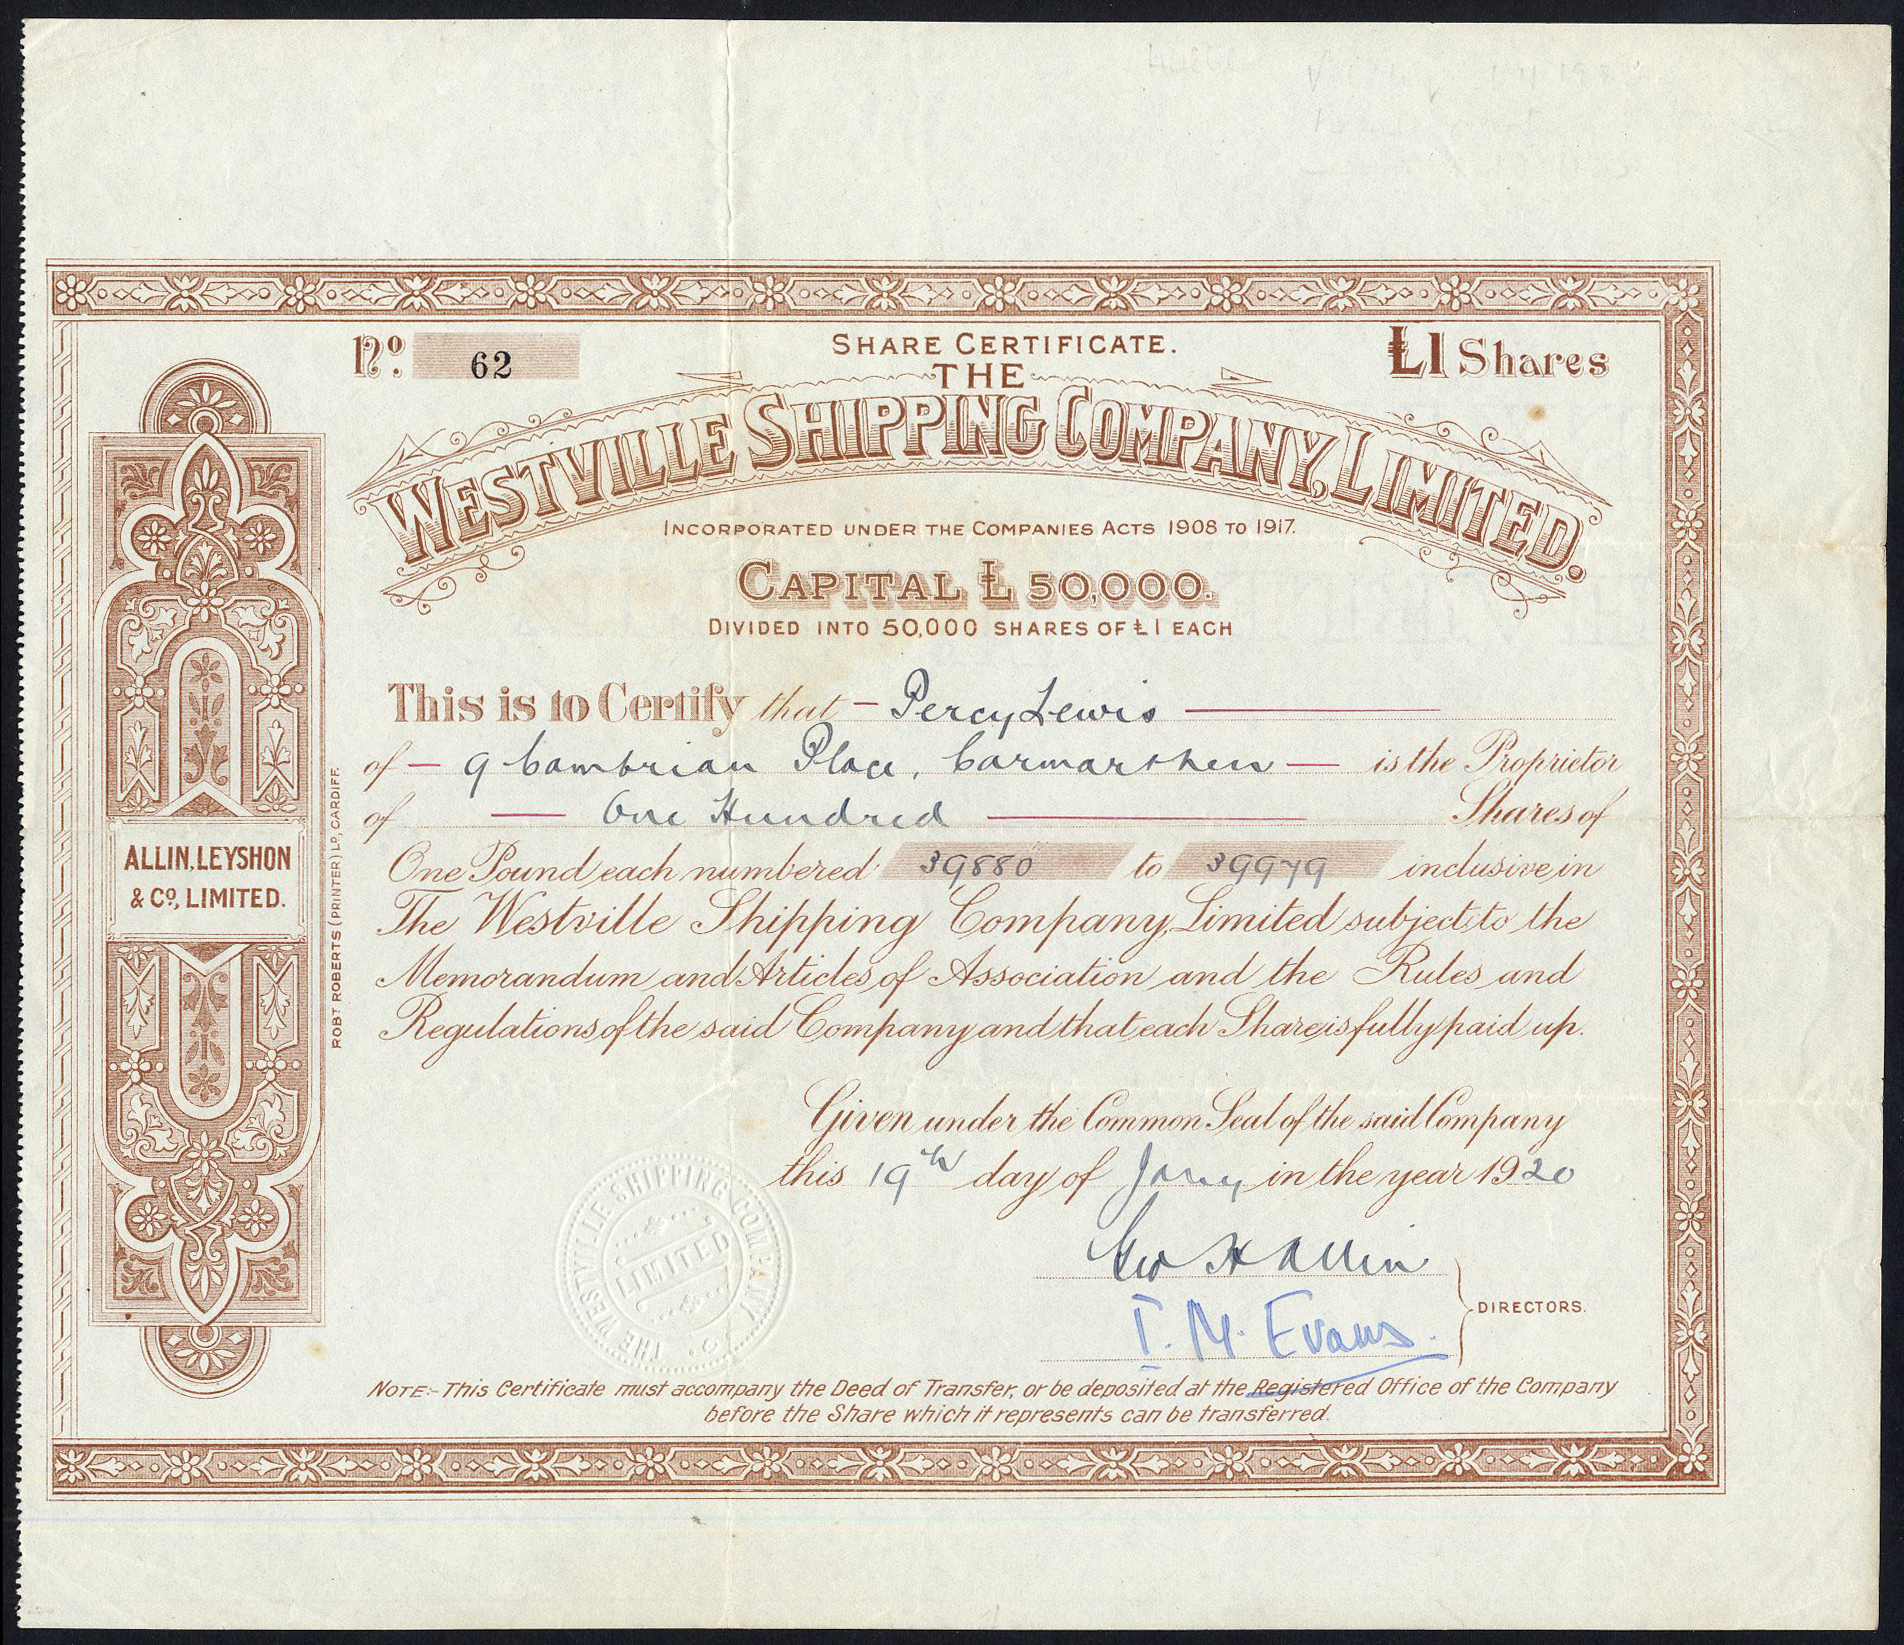 No. 62
SHARE CERTIFICATE.
£1 Shares
THE
WESTVILLE SHIPPING COMPANY, LIMITED.
INCORPORATED UNDER THE COMPANIES ACTS 1908 TO 1917.
CAPITAL £ 50,000.
DIVIDED INTO 50,000 SHARES OF £1 EACH
This is to Certify that – Percy Lewis
of – 9 Cambrian Place, Carmarthen – is the Proprietor
of – One Hundred – Shares of
One Pound each numbered 39880 to 39979 inclusive in
The Westville Shipping Company, Limited subject to the
Memorandum and Articles of Association and the Rules and
Regulations of the said Company and that each Share is fully paid up.
Given under the Common Seal of the said Company
this 19th day of Jany in the year 1920
Geo H Allin
T. M. Evans.
DIRECTORS.
NOTE:- This Certificate must accompany the Deed of Transfer, or be deposited at the Registered Office of the Company
before the Share which it represents can be transferred.
ALLIN, LEYSHON
& CO., LIMITED.
ROBT ROBERTS (PRINTER) LD, CARDIFF.
THE WESTVILLE SHIPPING COMPANY
LIMITED